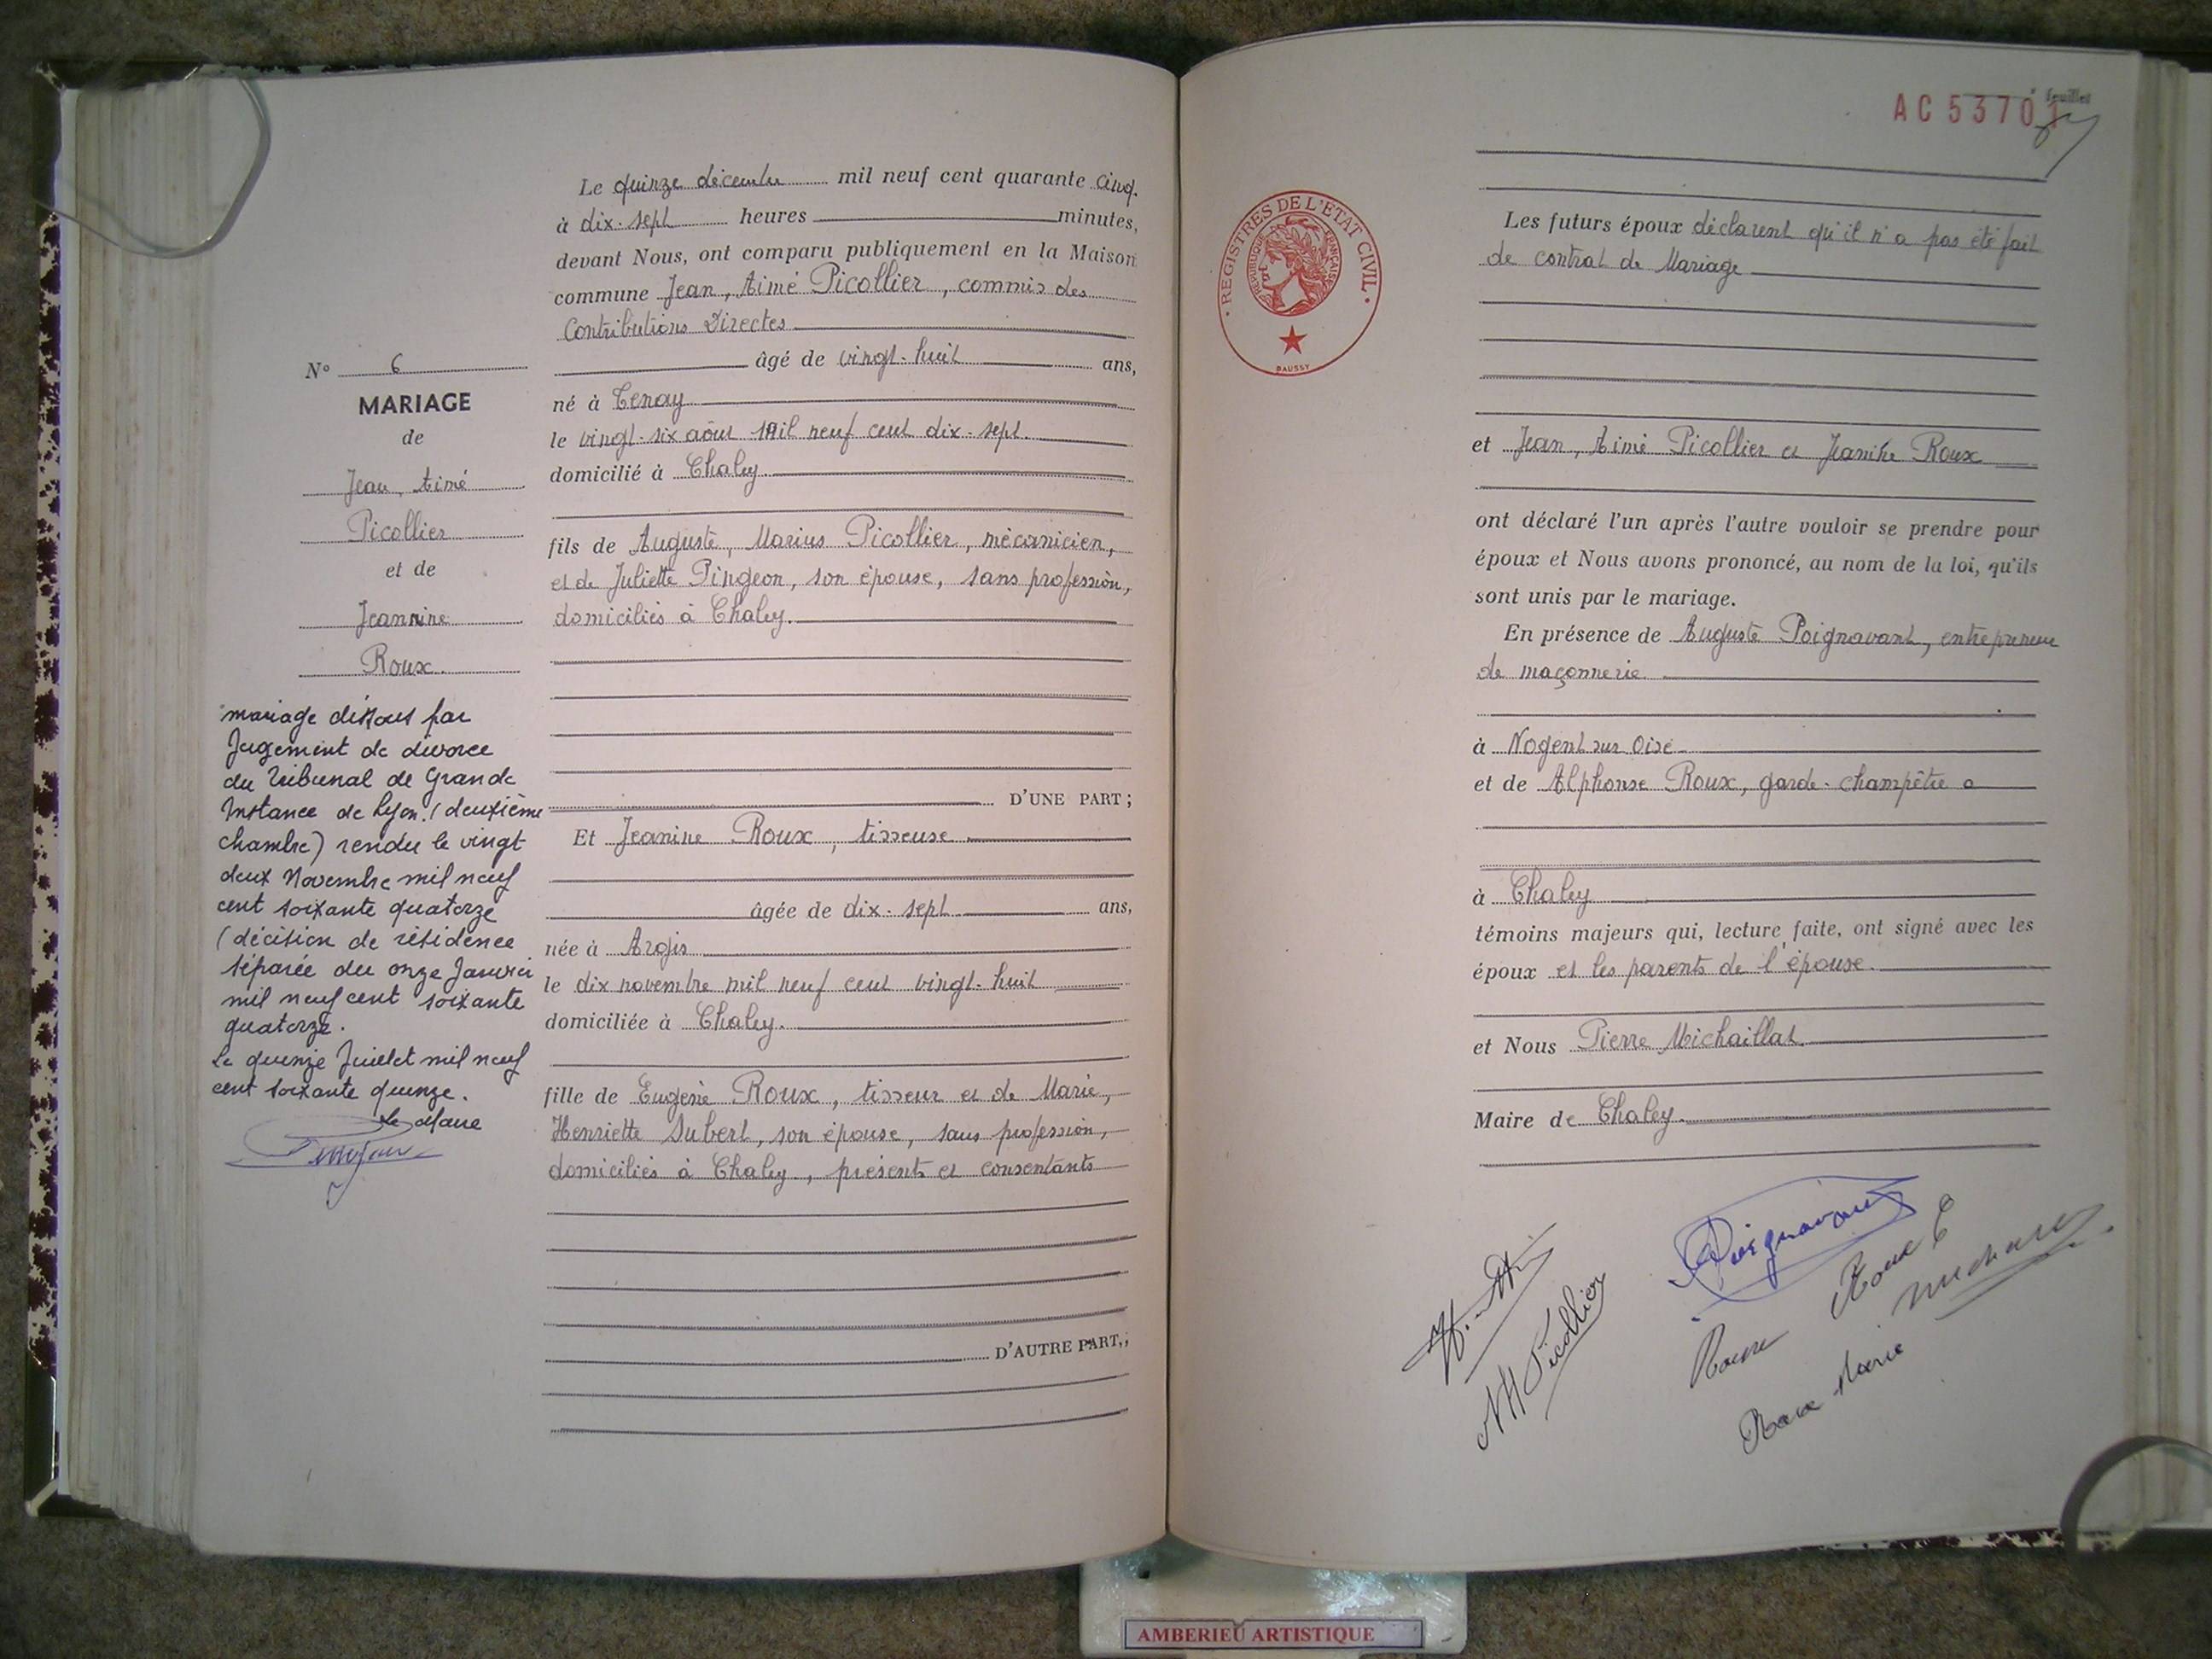 Nº 6
MARIAGE
de
Jean, Aimé
Picollier
et de
Jeannine
Roux
mariage dissous par
Jugement de divorce
du Tribunal de Grande
Instance de Lyon. (deuxième
chambre) rendu le vingt
deux Novembre mil neuf
cent soixante quatorze
(décision de résidence
séparée du onze Janvier
mil neuf cent soixante
quatorze.
Le quinze Juillet mil neuf
cent soixante quinze.
Le Maire
Le quinze décembre mil neuf cent quarante cinq.
à dix-sept heures minutes,
devant Nous, ont comparu publiquement en la Maison
commune Jean, Aimé Picollier, commis des
Contributions Directes
âgé de vingt-huit ans,
né à Tenay
le vingt-six août mil neuf cent dix-sept.
domicilié à Chaley.
fils de Auguste, Marius Picollier, mécanicien,
et de Juliette Pingeon, son épouse, sans profession,
domiciliés à Chaley.
D'UNE PART ;
Et Jeanine Roux, tisseuse
âgée de dix-sept ans,
née à Argis
le dix novembre mil neuf cent vingt-huit
domiciliée à Chaley.
fille de Eugène Roux, tisseur et de Marie,
Henriette Aubert, son épouse, sans profession,
domiciliés à Chaley, présents et consentants
D'AUTRE PART,;
AC 53701
feuillet
REGISTRES DE L'ETAT CIVIL
REPUBLIQUE FRANÇAISE
DAUSSY
Les futurs époux déclarent qu'il n'a pas été fait
de contrat de Mariage
et Jean, Aimé Picollier et Jeanine Roux
ont déclaré l'un après l'autre vouloir se prendre pour
époux et Nous avons prononcé, au nom de la loi, qu'ils
sont unis par le mariage.
En présence de Auguste Poignavant, entrepreneur
de maçonnerie
à Nogent sur Oise
et de Alphonse Roux, garde-champêtre
à Chaley
témoins majeurs qui, lecture faite, ont signé avec les
époux et les parents de l'épouse.
et Nous Pierre Michaillat.
Maire de Chaley.
Poignavant
Picollier
Roux E
Roux
Roux Marie
AMBERIEU ARTISTIQUE